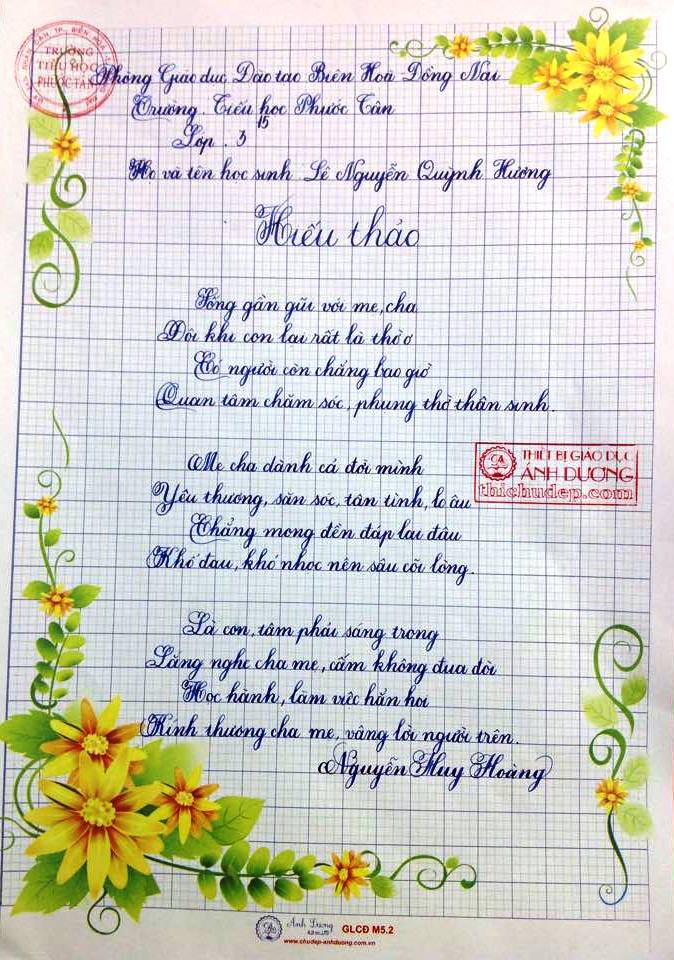 TRƯỜNG
TIỂU HỌC
PHƯỚC TÂN
Phòng Giáo dục Đào tạo Biên Hoà Đồng Nai
Trường. Tiểu học Phước Tân
Lớp. 3 15
Họ và tên học sinh Lê Nguyễn Quỳnh Hương
Hiếu thảo
Sống gần gũi với mẹ, cha
Đôi khi con lại rất là thờ ơ
Có người còn chẳng bao giờ
Quan tâm chăm sóc, phụng thờ thân sinh.
Mẹ cha dành cả đời mình
Yêu thương, săn sóc, tận tình, lo âu
Chẳng mong đền đáp lại đâu
Khổ đau, khó nhọc nên sâu cõi lòng.
Là con, tâm phải sáng trong
Lắng nghe cha mẹ, cấm không đua đòi
Học hành, làm việc hẳn hoi
Kính thương cha mẹ, vâng lời người trên.
Nguyễn Huy Hoàng
THIẾT BỊ GIÁO DỤC
ÁNH DƯƠNG
thichudep.com
Ánh Dương
GLCĐ M5.2
www.chudep-anhduong.com.vn